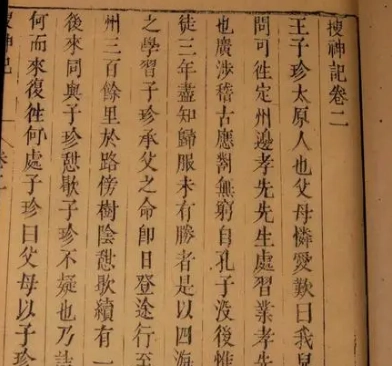 搜神記卷二
王子珍太原人也父母憐愛歎曰我兒
問可徃定州邊孝先先生處習業孝先
也廣渉稽古應對無窮自孔子没後惟
徒三年盡知歸服未有勝者是以四海
之學習子珍承父之命即日登途行至
州三百餘里於路傍樹陰憇歇續有一
後來同與子珍憇歇子珍不疑也乃
何而來復徃何處子珍曰父母以子珍
搜神記